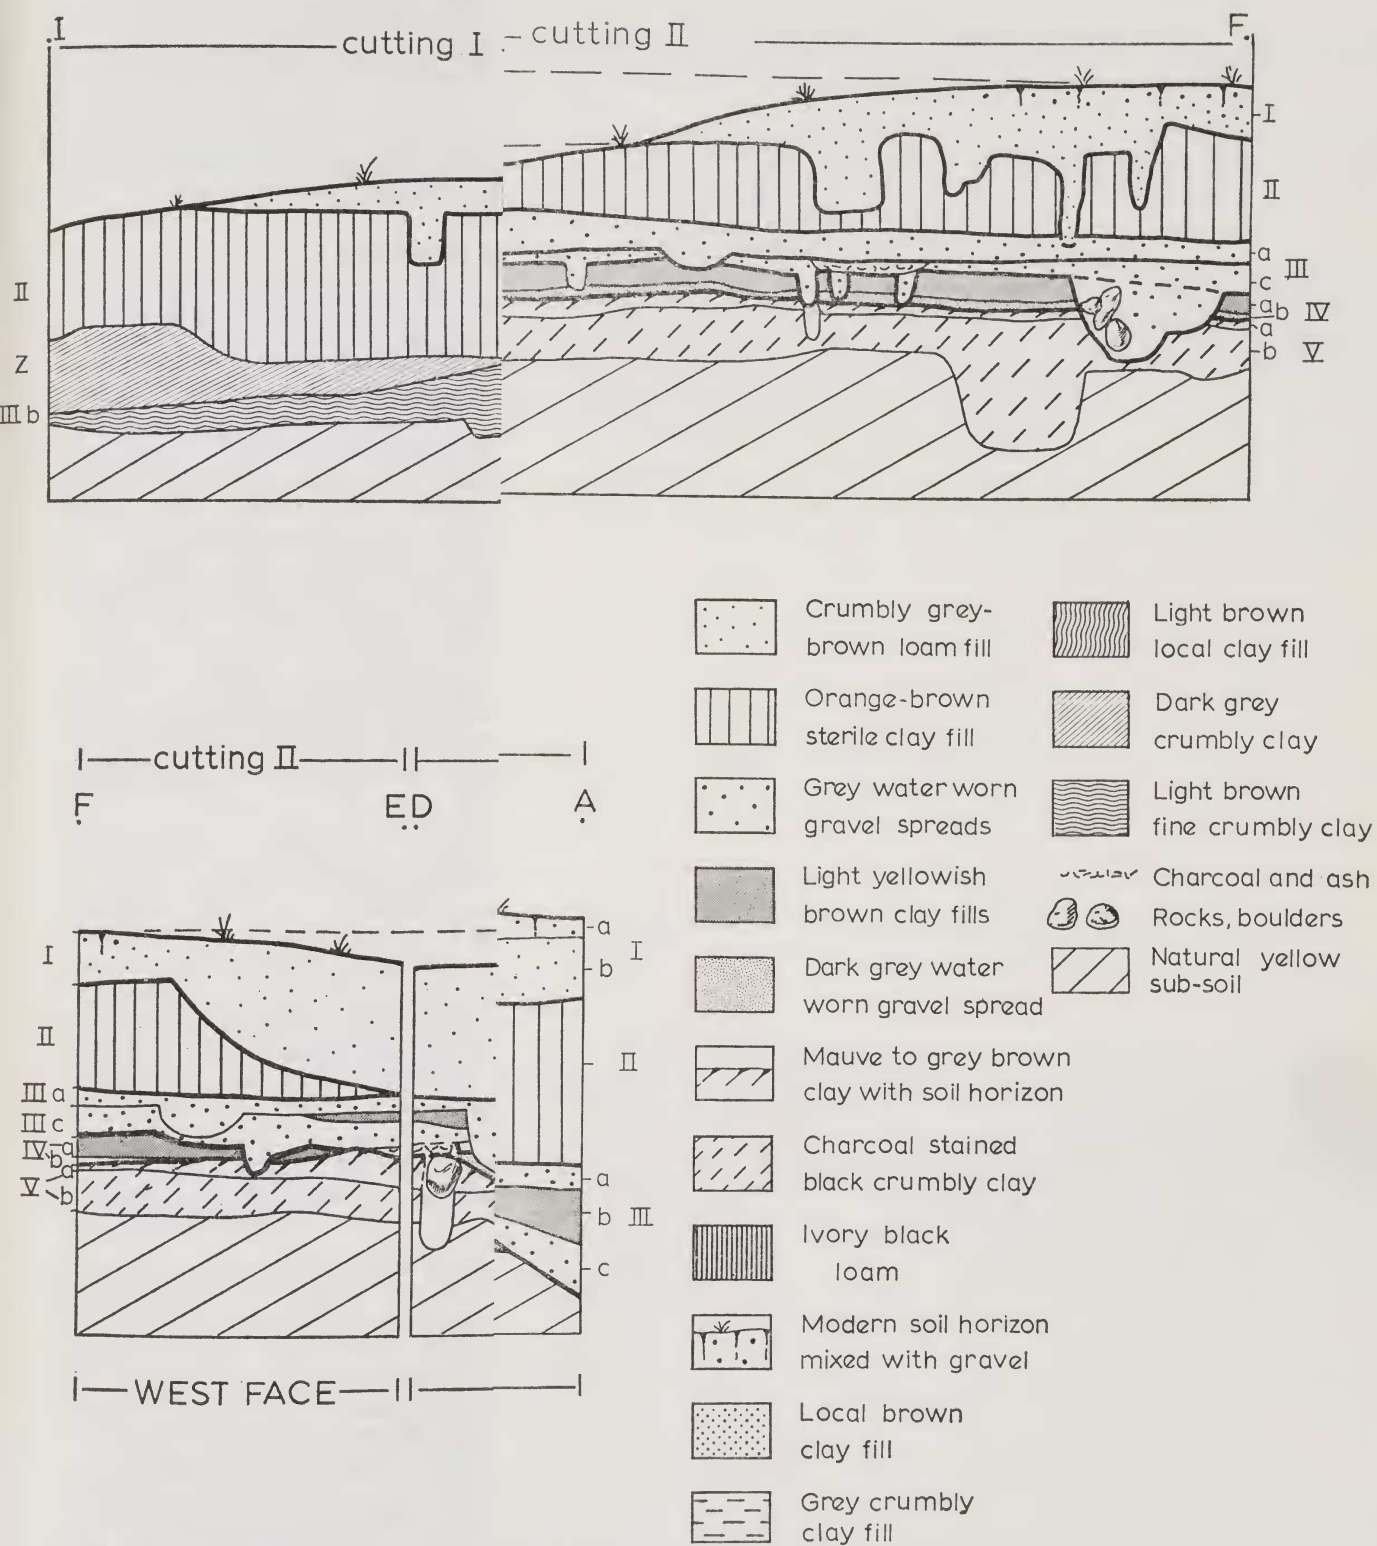 I
F
cutting I - cutting II
I
II
a
III
c
a
b IV
a
b V
II
Z
III b
cutting II
F
E D
A
I
II
III a
III c
IV a
b
V a
b
a
I
b
II
a
b III
c
WEST FACE
Crumbly grey-
brown loam fill
Orange-brown
sterile clay fill
Grey water worn
gravel spreads
Light yellowish
brown clay fills
Dark grey water
worn gravel spread
Mauve to grey brown
clay with soil horizon
Charcoal stained
black crumbly clay
Ivory black
loam
Modern soil horizon
mixed with gravel
Local brown
clay fill
Grey crumbly
clay fill
Light brown
local clay fill
Dark grey
crumbly clay
Light brown
fine crumbly clay
Charcoal and ash
Rocks, boulders
Natural yellow
sub-soil